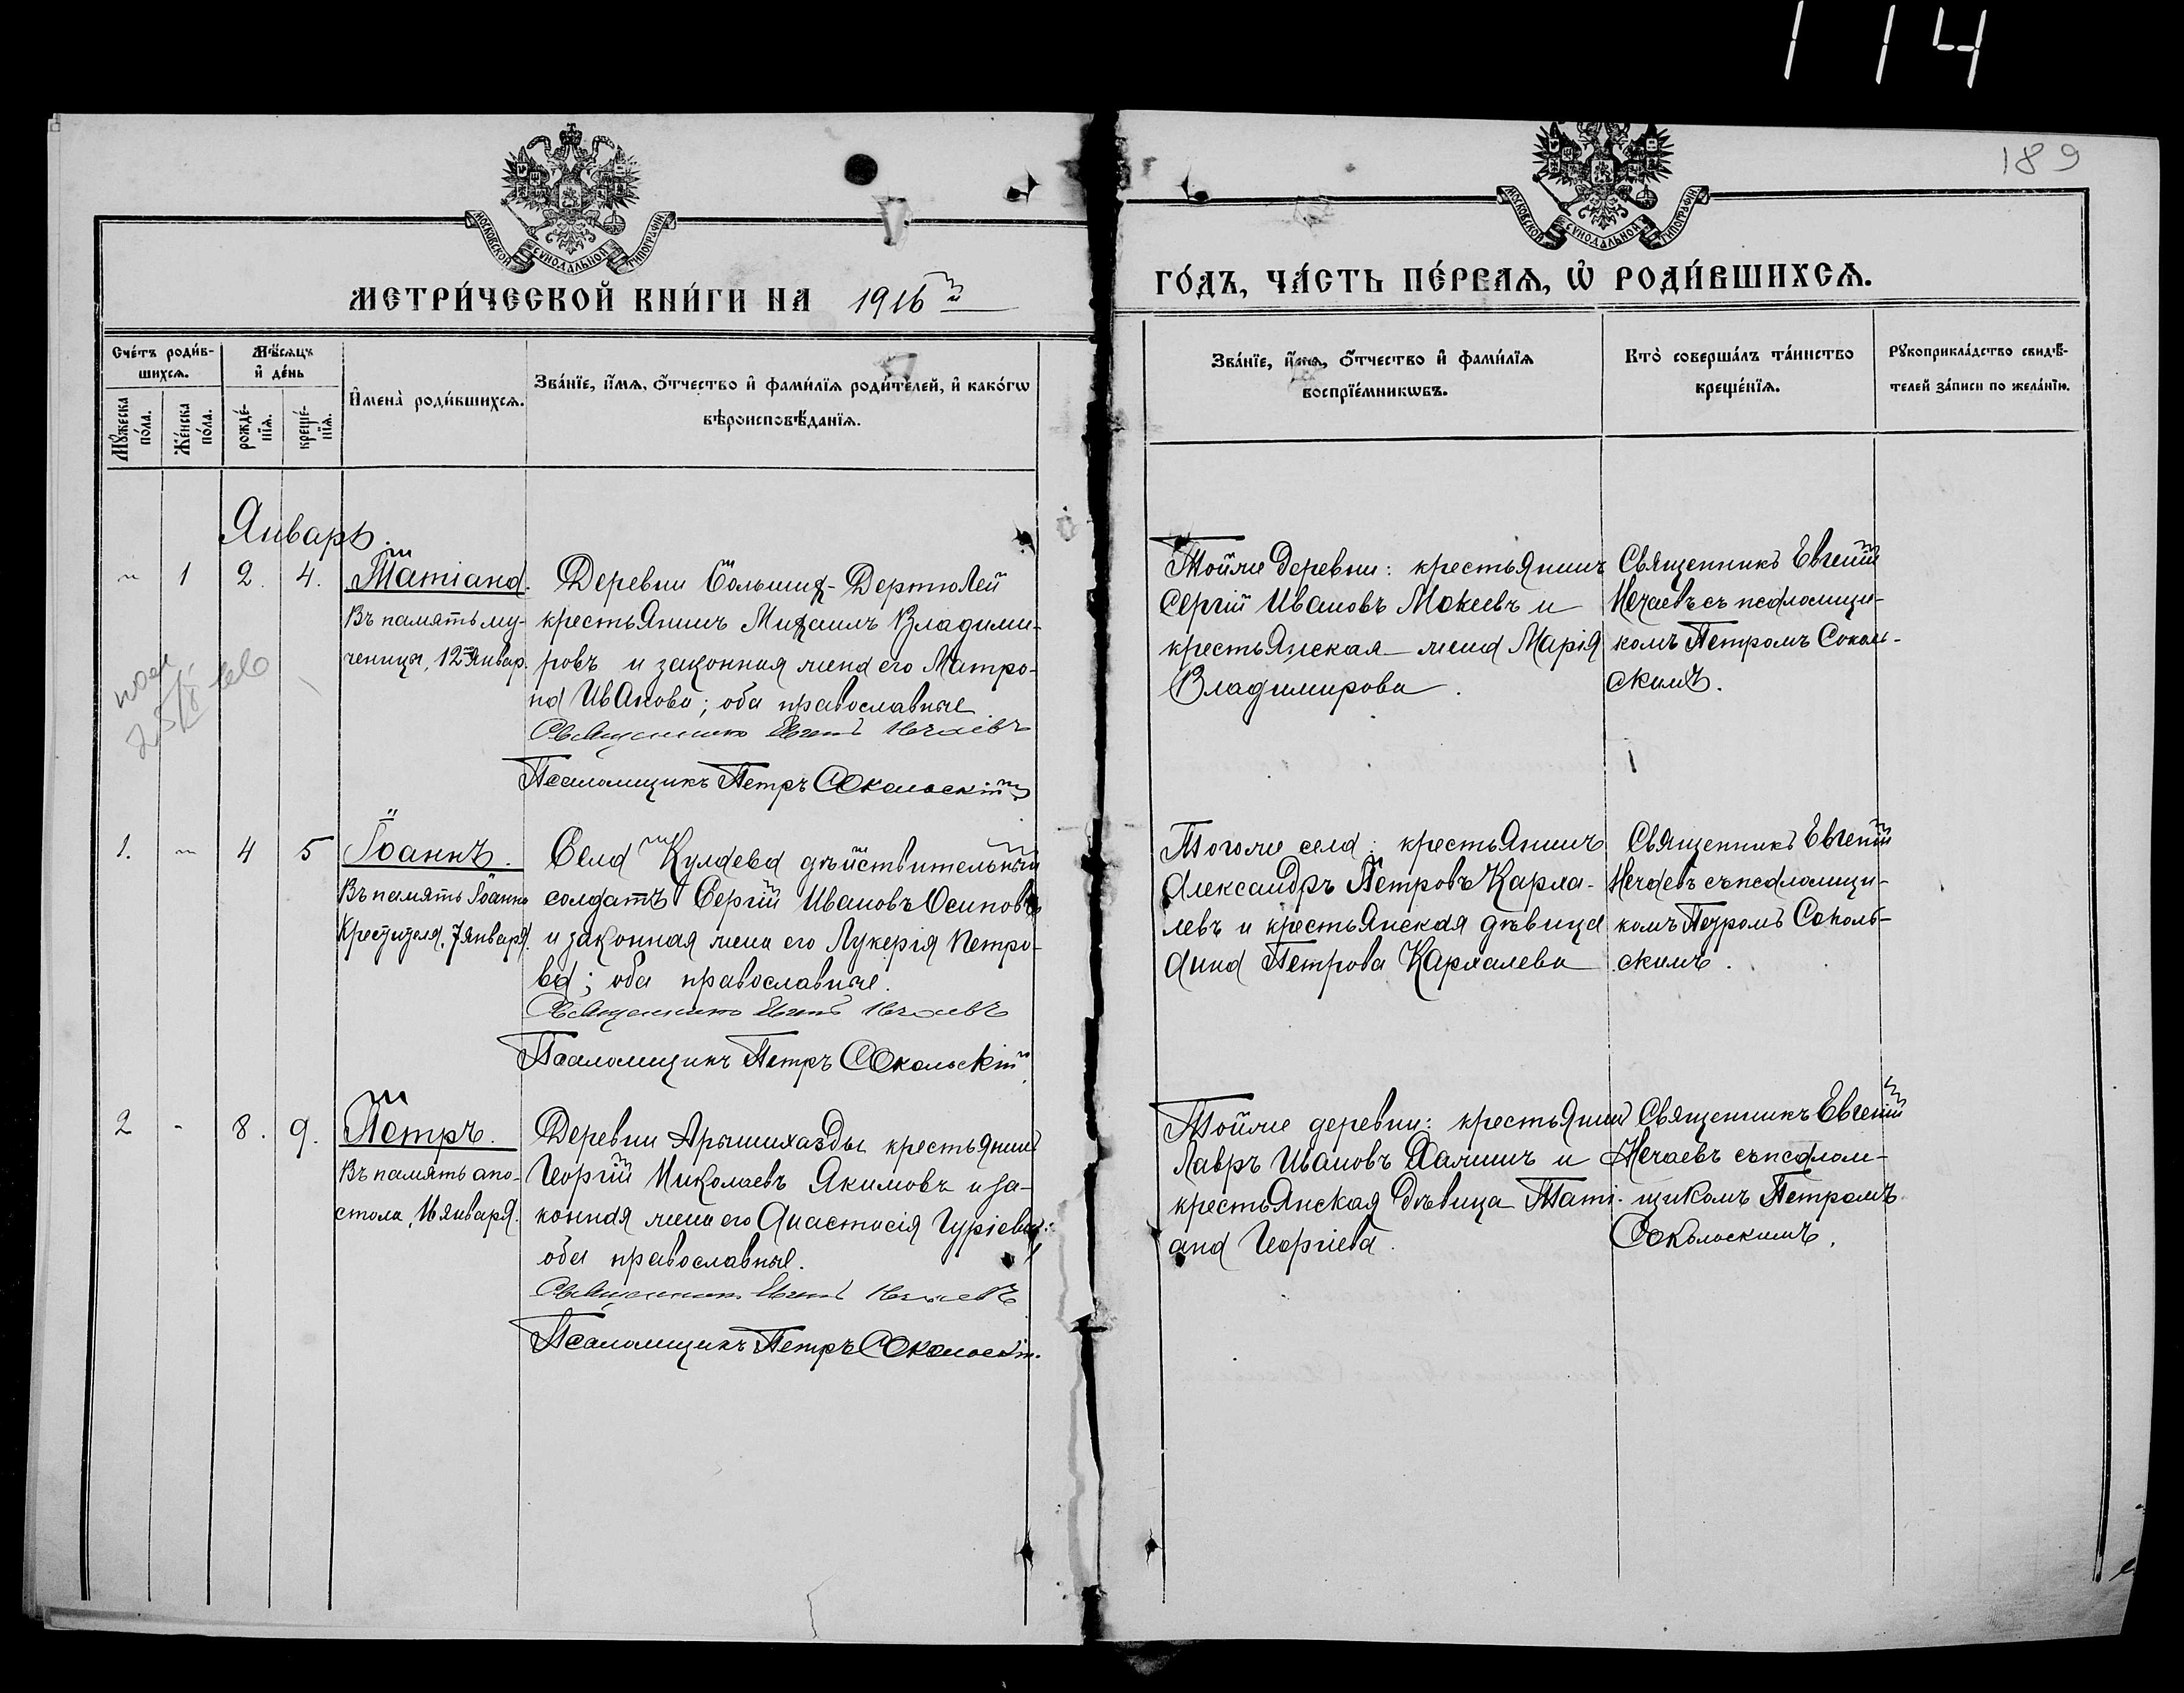 114
189
МОСКОВСКОЙ СѴНОДАЛЬНОЙ ТИПОГРАФІИ
МОСКОВСКОЙ СѴНОДАЛЬНОЙ ТИПОГРАФІИ
МЕТРИ́ЧЕСКОЙ КНИ́ГИ НА 1916й
ГО́ДЪ, ЧА́СТЬ ПЕ́РВАѦ, Ѡ҆ РОДИ́ВШИХСѦ.
Сче́тъ роди́в-
шихсѧ.
Мѣ́сѧцъ
и҆ де́нь
Мꙋ́жеска по́ла.
Же́нска по́ла.
рожде́-
нїѧ.
креще́-
нїѧ.
И҆мена̀ роди́вшихсѧ.
Зва́нїе, и҆́мѧ, ѻ҆́тчество и҆ фами́лїѧ роди́телей, и҆ како́гѡ
вѣроисповѣ́данїѧ.
Зва́нїе, и҆́мѧ, ѻ҆́тчество и҆ фами́лїѧ
воспрїе́мникѡвъ.
Кто̀ соверша́лъ та́инство
креще́нїѧ.
Рꙋкоприкла́дство свидѣ́-
телей за́писи по жела́нїю.
Январь.
1 2. 4. Татіана.
Въ память му-
ченицы, 12 Январ.
Деревни Большихъ-Дертюлей
крестьянинъ Михаилъ Владими-
ровъ и законная жена его Матро-
на Иванова; оба православные
Священникъ Евгеній Нечаевъ
Псаломщикъ Петръ Сокольскій
Тойже деревни: крестьянинъ
Сергій Ивановъ Мокеевъ и
крестьянская жена Марія
Владимирова.
Священникъ Евгеній
Нечаевъ съ псаломщи-
комъ Петромъ Соколь-
скимъ.
1. 4 5 Іоаннъ.
Въ память Іоанна
Крестителя, 7 января.
Села Кулаева дѣйствительный
солдатъ Сергій Ивановъ Осиповъ
и законная жена его Лукерія Петро-
ва; оба православные.
Священникъ Евгеній Нечаевъ
Псаломщикъ Петръ Сокольскій
Тогоже села: крестьянинъ
Александръ Петровъ Карма-
левъ и крестьянская дѣвица
Анна Петрова Кармалева
Священникъ Евгеній
Нечаевъ съ псаломщи-
комъ Петромъ Соколь-
скимъ.
2 - 8. 9. Петръ.
Въ память апо-
стола, 16 января.
Деревни Арышихазды крестьянинъ
Георгій Николаевъ Якимовъ и за-
конная жена его Анастасія Гуріева;
оба православные.
Священникъ Евгеній Нечаевъ
Псаломщикъ Петръ Сокольскій.
Тойже деревни: крестьянинъ
Лавръ Ивановъ и
крестьянская дѣвица Таті-
ана Георгіева.
Священникъ Евгеній
Нечаевъ съ псалом-
щикомъ Петромъ
Сокольскимъ.